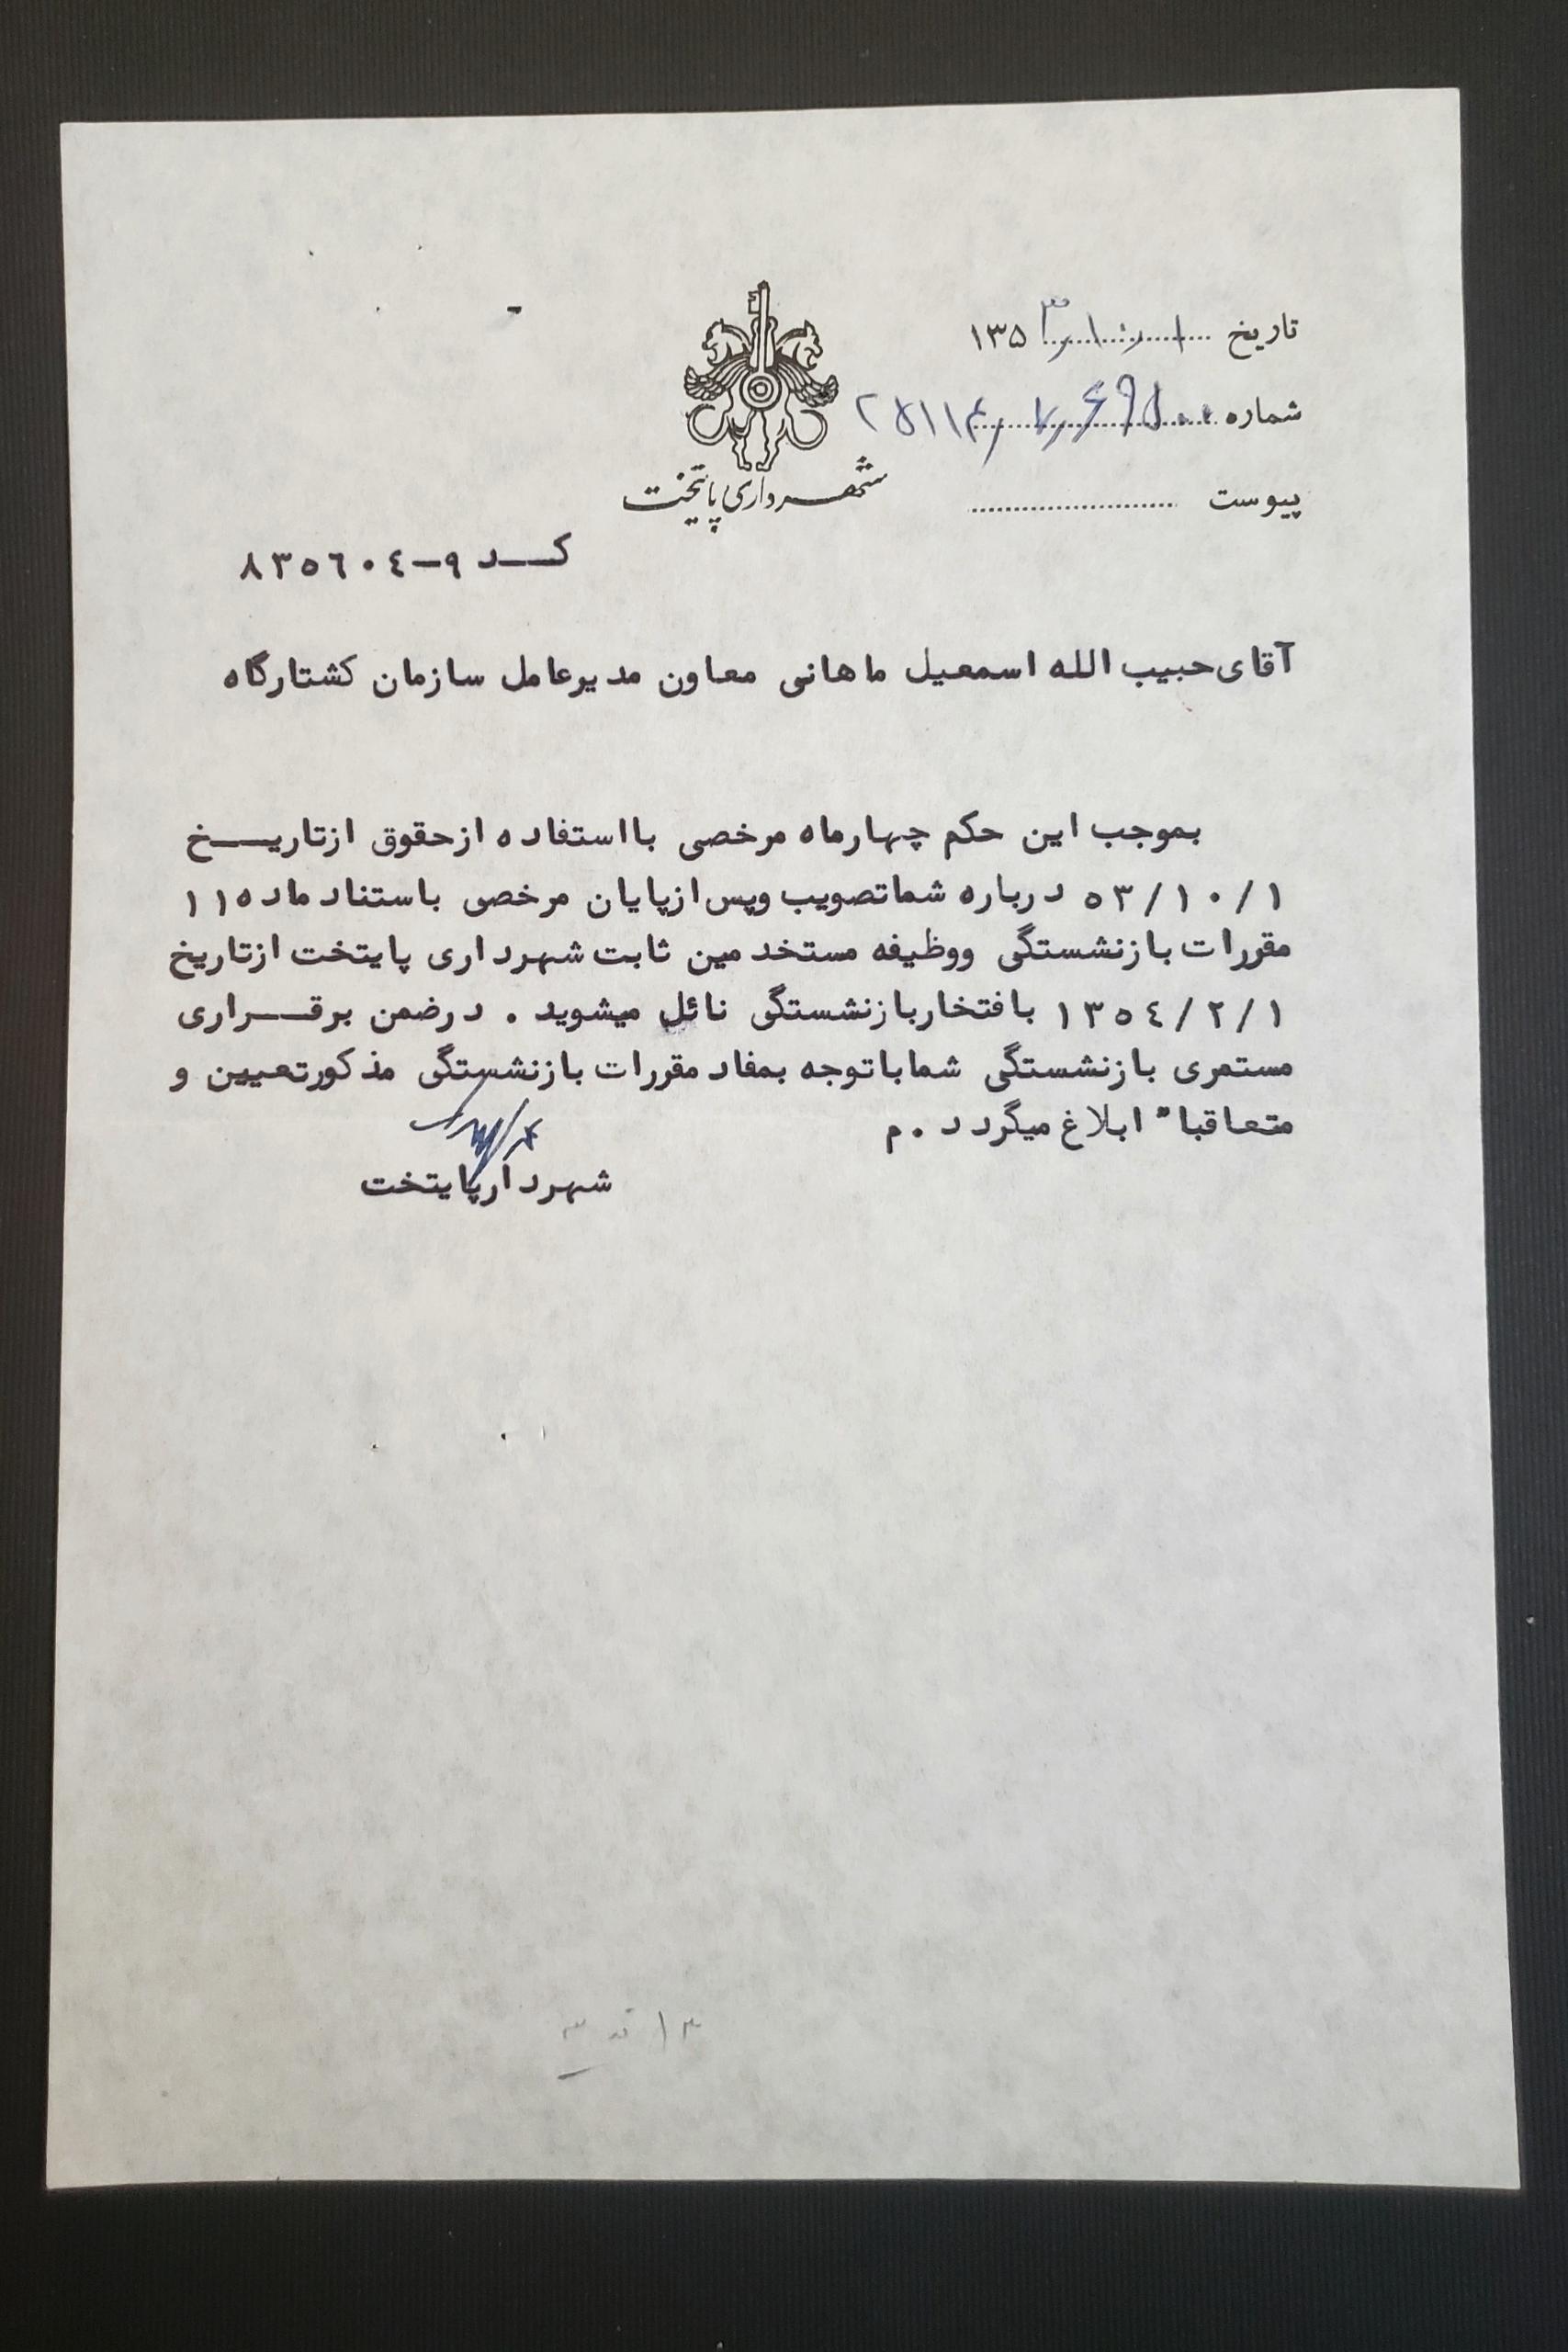 تاریخ ۱ر۱۰ر۱۳۵۳
شماره
پیوست
شهرداری پایتخت
کـــد ۹-۸۳۵٦۰٤
آقای حبیب الله اسمعیل ماهانی معاون مدیرعامل سازمان کشتارگاه
بموجب این حکم چهارماه مرخصی بااستفاده ازحقوق ازتاریـــخ
۵۳/۱۰/۱ درباره شماتصویب وپس ازپایان مرخصی باستناد ماده ۱۱
مقررات بازنشستگی ووظیفه مستخدمین ثابت شهرداری پایتخت ازتاریخ
۱۳۵٤/۲/۱ بافتخاربازنشستگی نائل میشوید . درضمن برقـــراری
مستمری بازنشستگی شماباتوجه بمفاد مقررات بازنشستگی مذکورتعیین و
متعاقبا" ابلاغ میگردد .م
شهردارپایتخت